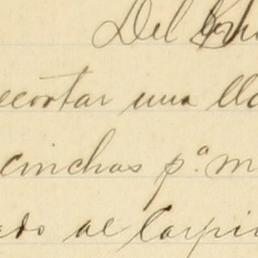 Del
ecortar una lla
cinchas p.ª m
ado al Carpin